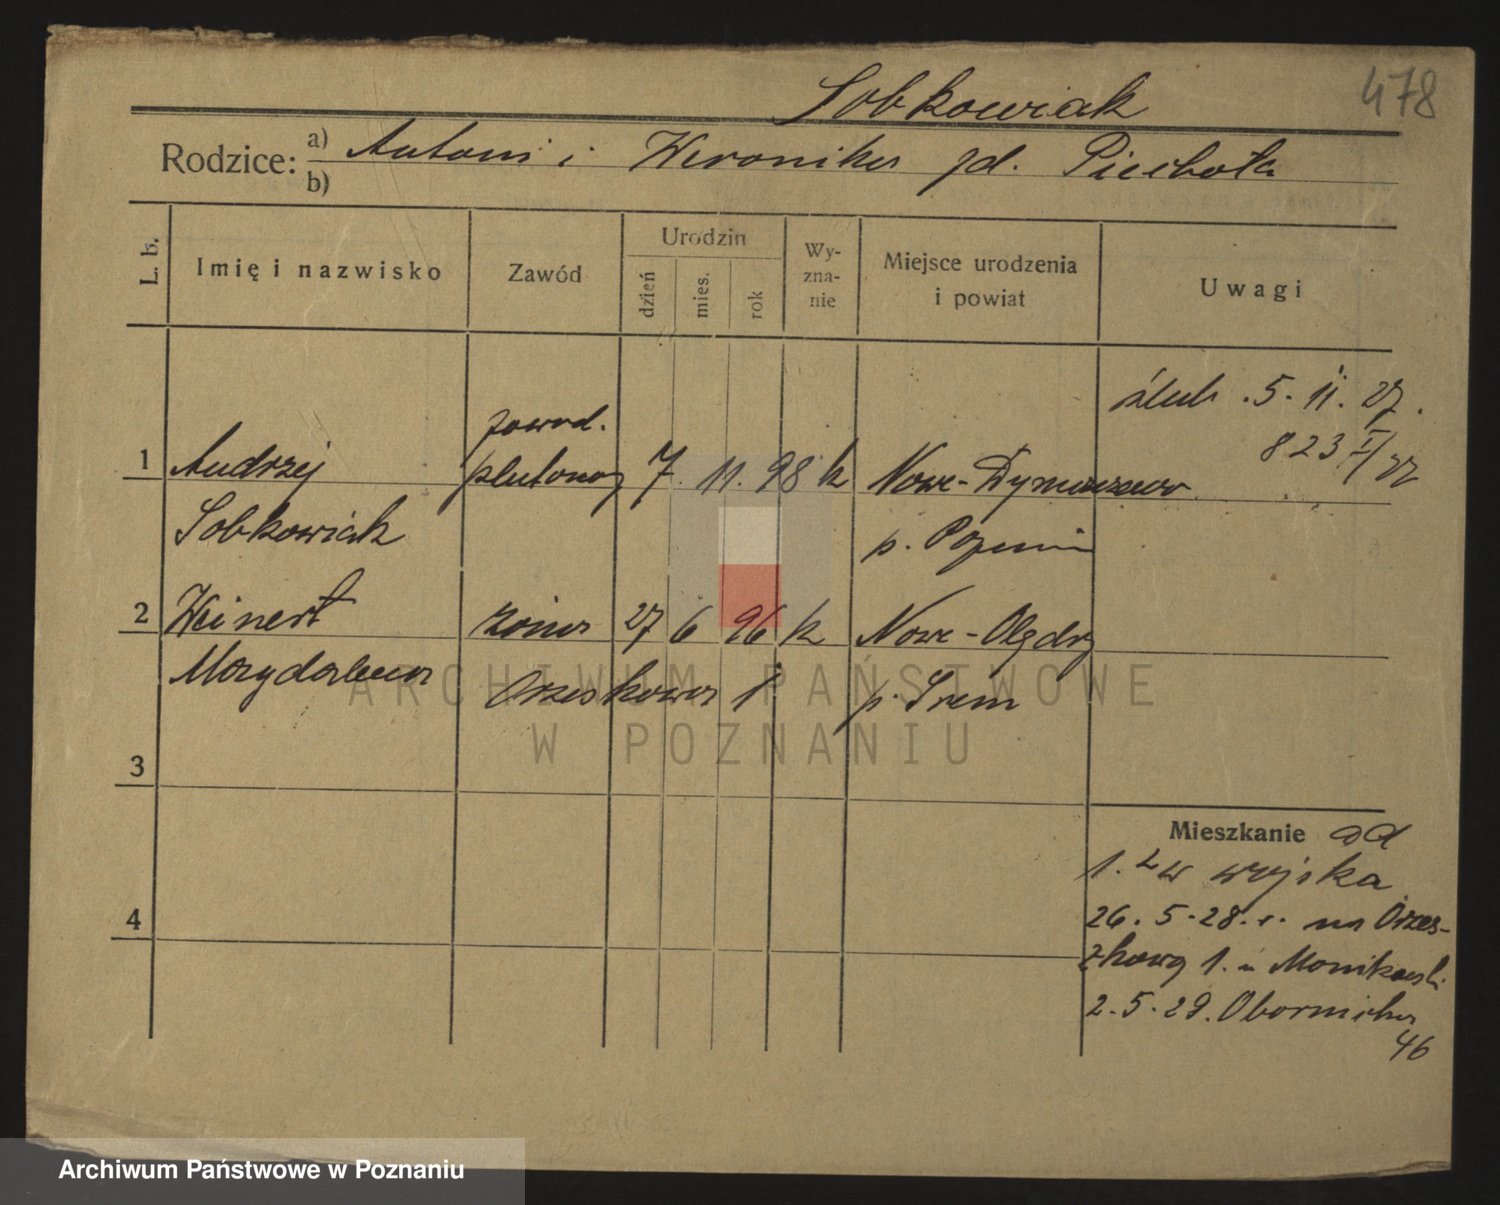 Sobkowiak
478
Rodzice: a) Antoni i Weronika zd. Piechota
b)
L. b.
Imię i nazwisko
Zawód
Urodzin
dzień
mies.
rok
Wy-
zna-
nie
Miejsce urodzenia
i powiat
Uwagi
ślub . 5. 11. 27.
823
zawod.
1 Andrzej plutonog 7. 11. 98 k Nowe-Dymaczewo
Sobkowiak p.
2 Weinert żona 27 6 96 k Nowe-Olędry
Magdalena Orzeszkowa 1 p. Śrem
3
Mieszkanie od
1. w wojska
4
26. 5. 28. r. na Orzesz-
kową 1. u Monikowski
2. 5. 29. Obornicka
46
ARCHIWUM PAŃSTWOWE
W POZNANIU
Archiwum Państwowe w Poznaniu